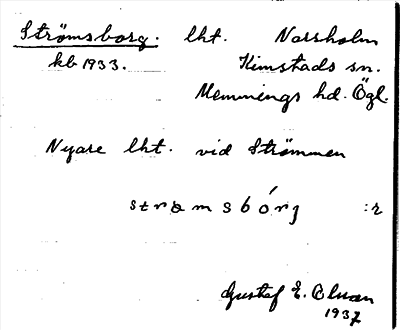 Strömsborg. lht. Norsholm
kb 1933. Kimstads sn.
Memmings hd. Ögl.
Nyare lht. vid Strömmen
strömsbórg :r
Gustaf E. Olsson
1937